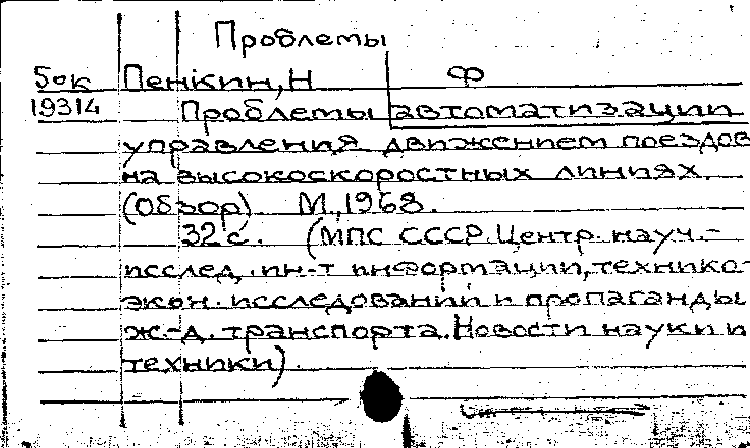 Проблемы
50к Пенкин, Н Ф
19314 Проблемы автоматизации
управления движением поездов
на высокоскоростных линиях.
(Обзор) М., 1968.
32 с. (МПС СССР. Центр. науч.-
исслед. ин-т информации, технико-
экон. исследований и пропаганды
ж.-д. транспорта. Новости науки и
техники).